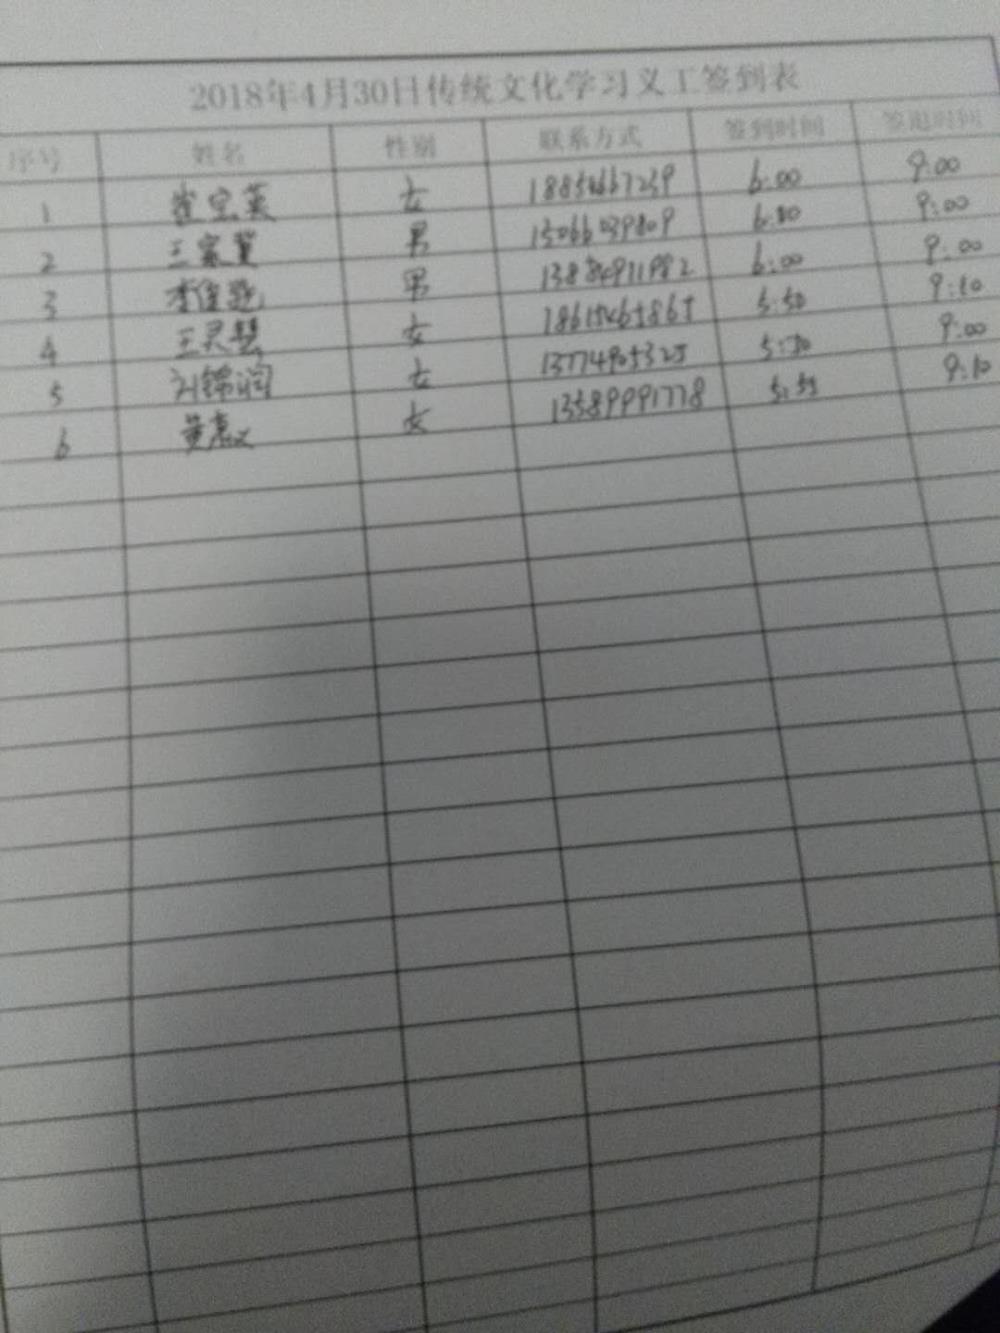 2018年4月30日传统文化学习义工签到表
序号 姓名 性别 联系方式 签到时间 签退时间
1 崔宝英 女 18854667239 6:00 9:00
2 王家 男 15066039809 6:00 9:00
3 李 男 6:00 9:00
4 王灵慧 女 5:50 9:10
5 刘锦润 女 9:00
6 黄惠义 女 13589991778 5:55 9:10